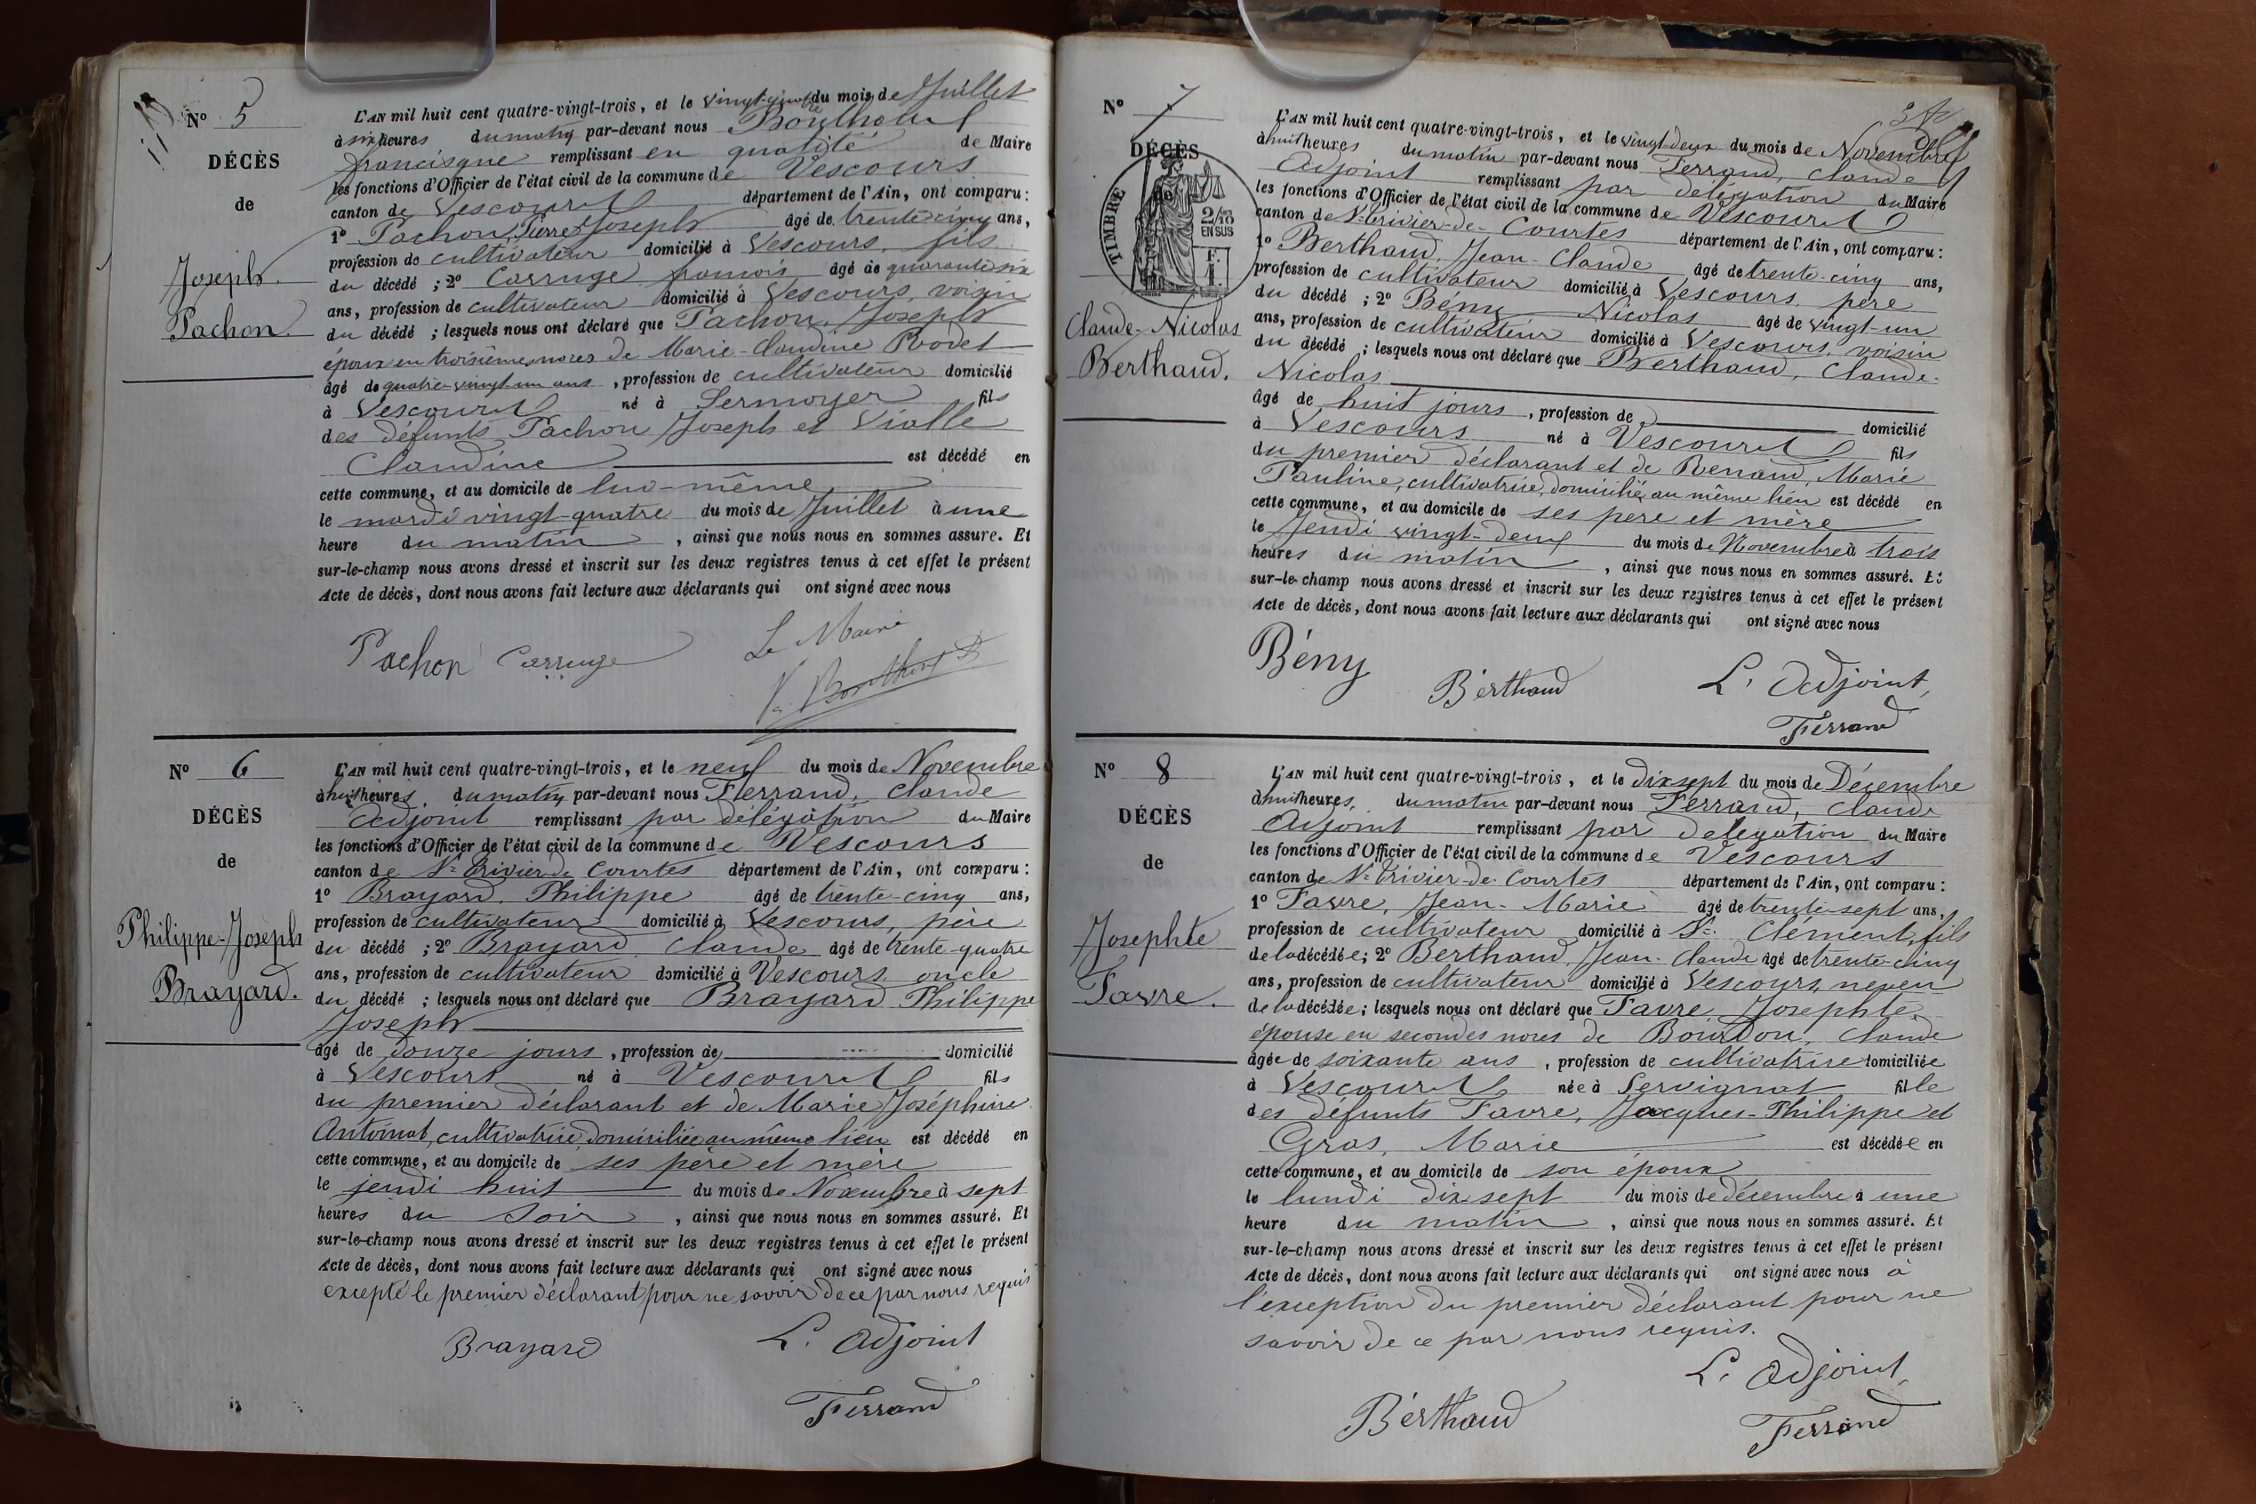 N° 5
DÉCÈS
de
Joseph
Pachon
L'AN mil huit cent quatre-vingt-trois, et le vingt-quatre du mois de Juillet
à six heures du matin par-devant nous
francisque remplissant en qualité de Maire
les fonctions d'Officier de l'état civil de la commune de Vescours
canton de Vescours département de l'Ain, ont comparu :
1° Pachon, Pierre Joseph âgé de trente-cinq ans,
profession de cultivateur domicilié à Vescours, fils
du décédé ; 2° Carruge françois âgé de quarante six
ans, profession de cultivateur domicilié à Vescours, voisin
du décédé ; lesquels nous ont déclaré que Pachon, Joseph
époux en troisième noces de Marie-Claudine Brodet
âgé de quatre-vingt-un ans, profession de cultivateur domicilié
à Vescours né à Sermoyer fils
des défunts Pachon Joseph et Vialle
Claudine est décédé en
cette commune, et au domicile de lui-même
le mardi vingt-quatre du mois de Juillet à une
heure du matin, ainsi que nous nous en sommes assuré. Et
sur-le-champ nous avons dressé et inscrit sur les deux registres tenus à cet effet le présent
Acte de décès, dont nous avons fait lecture aux déclarants qui ont signé avec nous
Pachon Carruge Le Maire
N° 6
DÉCÈS
de
Philippe-Joseph
Brayard.
L'AN mil huit cent quatre-vingt-trois, et le neuf du mois de Novembre
à huit heures, du matin par-devant nous Ferrand, Claude
Adjoint remplissant par délégation du Maire
les fonctions d'Officier de l'état civil de la commune de Vescours
canton de St Trivier de Courtes département de l'Ain, ont comparu :
1° Brayard, Philippe âgé de trente-cinq ans,
profession de cultivateur domicilié à Vescours, père
du décédé ; 2° Brayard Claude âgé de trente-quatre
ans, profession de cultivateur domicilié à Vescours, oncle
du décédé ; lesquels nous ont déclaré que Brayard Philippe
Joseph
âgé de douze jours, profession de domicilié
à Vescours né à Vescours fils
du premier déclarant et de Marie Joséphine
Antoinat, cultivatrice domiciliée au même lieu est décédé en
cette commune, et au domicile de ses père et mère
le jeudi huit du mois de Novembre à sept
heures du soir, ainsi que nous nous en sommes assuré. Et
sur-le-champ nous avons dressé et inscrit sur les deux registres tenus à cet effet le présent
Acte de décès, dont nous avons fait lecture aux déclarants qui ont signé avec nous
excepté le premier déclarant pour ne savoir de ce par nous requis
Brayard L'Adjoint
Ferrand
N° 7
DÉCÈS
de
TIMBRE
2/10
EN SUS
F.
1.
Claude-Nicolas
Berthaud.
L'AN mil huit cent quatre-vingt-trois, et le vingt-deux du mois de Novembre
à huit heures du matin par-devant nous Ferrand, Claude
Adjoint remplissant par délégation du Maire
les fonctions d'Officier de l'état civil de la commune de Vescours
canton de St Trivier-de-Courtes département de l'Ain, ont comparu :
1° Berthaud, Jean-Claude âgé de trente-cinq ans,
profession de cultivateur domicilié à Vescours, père
du décédé ; 2° Bény Nicolas âgé de vingt-un
ans, profession de cultivateur domicilié à Vescours, voisin
du décédé ; lesquels nous ont déclaré que Berthaud, Claude-
Nicolas
âgé de huit jours, profession de domicilié
à Vescours né à Vescours fils
du premier déclarant et de Renaud, Marie
Pauline, cultivatrice, domiciliée au même lieu est décédé en
cette commune, et au domicile de ses père et mère
le Jeudi vingt-deux du mois de Novembre à trois
heures du matin, ainsi que nous nous en sommes assuré. Et
sur-le-champ nous avons dressé et inscrit sur les deux registres tenus à cet effet le présent
Acte de décès, dont nous avons fait lecture aux déclarants qui ont signé avec nous
Bény Berthaud L'Adjoint,
Ferrand
N° 8
DÉCÈS
de
Josephte
Favre.
L'AN mil huit cent quatre-vingt-trois, et le dix sept du mois de Décembre
à huit heures, du matin par-devant nous Ferrand, Claude
Adjoint remplissant par délégation du Maire
les fonctions d'Officier de l'état civil de la commune de Vescours
canton de St Trivier-de-Courtes département de l'Ain, ont comparu :
1° Favre, Jean-Marie âgé de trente-sept ans,
profession de cultivateur domicilié à St Clément, fils
de la décédée ; 2° Berthaud, Jean-Claude âgé de trente-cinq
ans, profession de cultivateur domicilié à Vescours, neveu
de la décédée ; lesquels nous ont déclaré que Favre, Josephte,
épouse en secondes noces de Bourdon, Claude
âgée de soixante ans, profession de cultivatrice domiciliée
à Vescours née à Servignat fille
des défunts Favre, Jacques-Philippe et
Gras, Marie est décédée en
cette commune, et au domicile de son époux
le lundi dix sept du mois de décembre à une
heure du matin, ainsi que nous nous en sommes assuré. Et
sur-le-champ nous avons dressé et inscrit sur les deux registres tenus à cet effet le présent
Acte de décès, dont nous avons fait lecture aux déclarants qui ont signé avec nous à
l'exception du premier déclarant pour ne
savoir de ce par nous requis.
L'Adjoint,
Berthaud Ferrand